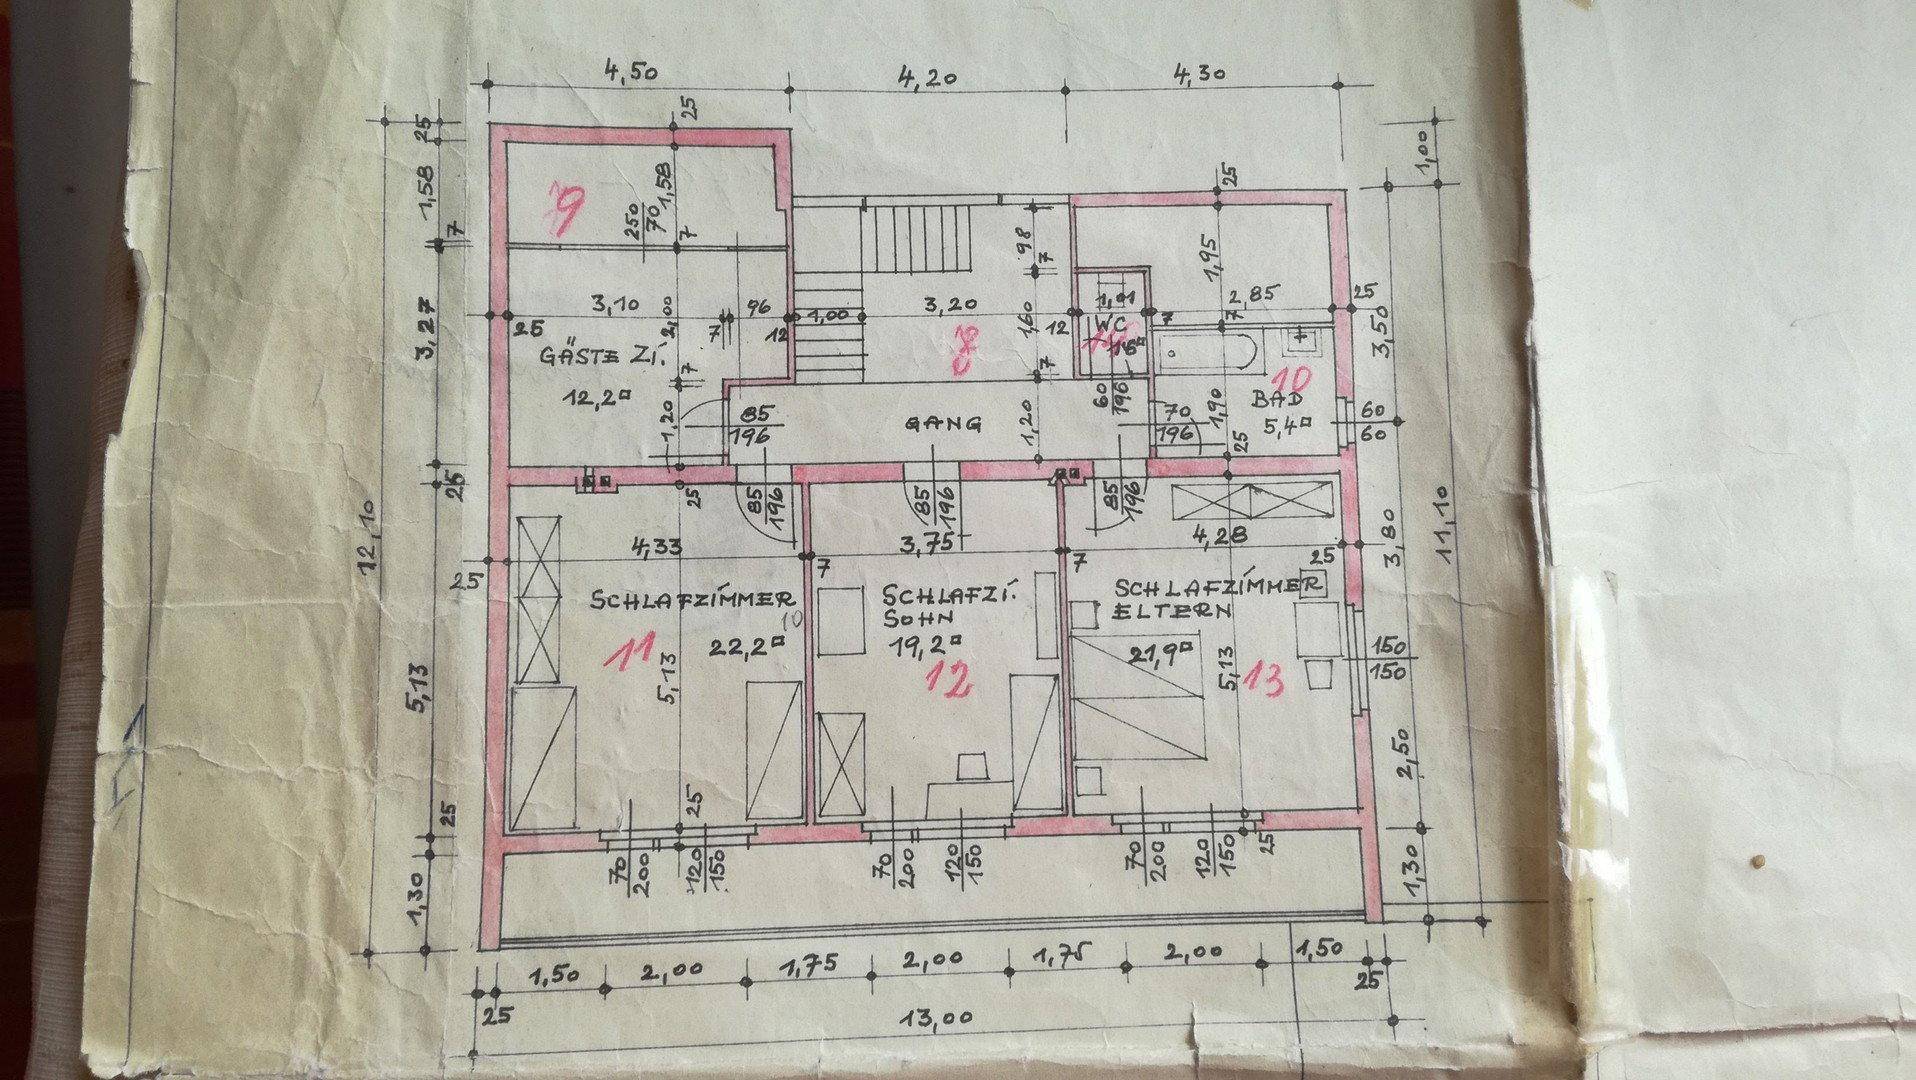 4,50
4,20
4,30
25
25
1,58
7
3,27
25
5,13
25
1,30
12,10
9
250
70
1,58
7
3,10
2,00
96
7
12
25
GÄSTE ZI.
12,2¤
7
1,20
85
196
1,00
3,20
98
7
1,60
12
7
8
GANG
1,20
1,01
WC
7
60
196
25
1,95
2,85
7
25
10
BAD
5,4¤
1,90
70
196
25
60
60
1,00
3,50
3,80
11,10
2,50
1,30
25
85
196
4,33
25
7
SCHLAFZIMMER
10
22,2¤
11
5,13
25
85
196
3,75
7
SCHLAFZI.
SOHN
19,2¤
12
85
196
4,28
25
SCHLAFZIMMER
ELTERN
21,9¤
5,13
13
150
150
70
200
120
150
70
200
120
150
70
200
120
150
25
1,50
2,00
1,75
2,00
1,75
2,00
1,50
25
25
13,00